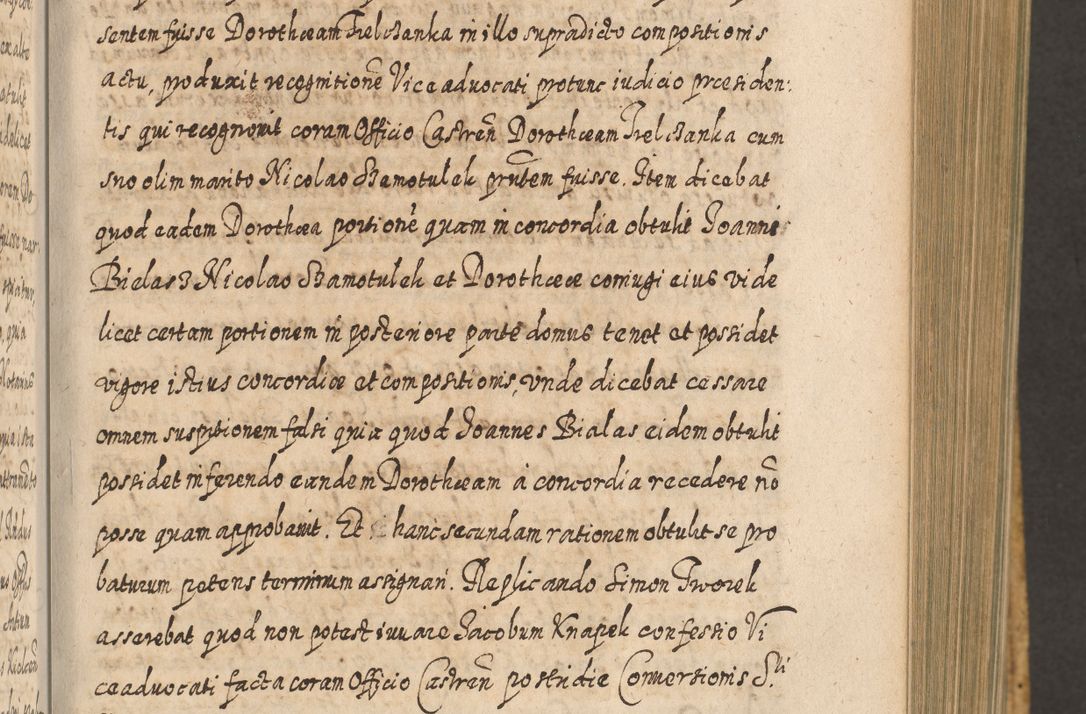 sentem fuisse Dorotheam Trelczanka in illo supradicto compositionis
actu, produxit recognitionē Viceadvocati protunc iudicio præsiden:
tis qui recognovit coram Officio Castreñ Dorotheam Trelczanka cum
suo olim marito Nicolao Szamotulek prntem fuisse. Item dicebat
quod eadem Dorothæa portionē quam in concordia obtulit Joannes
Bielasz Nicolao Szamotulek et Dorotheæ coniugi eius vide
licet certam portionem in posteriore parte domus tenet et possidet
vigore istius concordiæ et compositionis, vnde dicebat cessare
omnem suspitionem falsi quia quod Joannes Bialas eidem obtulit
possidet inferendo eandem Dorotheam à concordia recedere nō
posse quam approbavit. Et hanc secundam rationem obtulit se pro
baturum petens terminum assignari. Replicando Simon Tworek
asserebat quod non potest iuvare Jacobum Knapek confessio Vi
ceadvocati facta coram Officio Castreñ postridie Conversionis S.